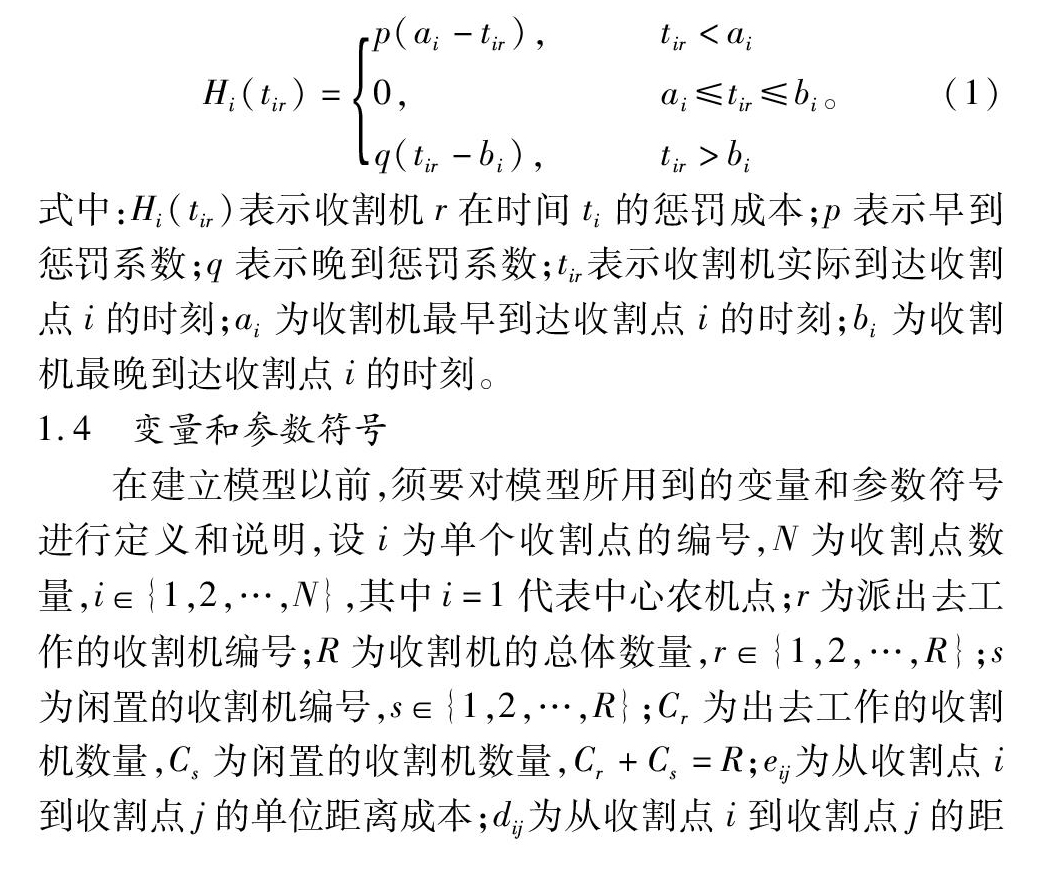 p(aᵢ − tᵢᵣ), tᵢᵣ < aᵢ
Hᵢ(tᵢᵣ) = { 0, aᵢ ≤ tᵢᵣ ≤ bᵢ。 (1)
q(tᵢᵣ − bᵢ), tᵢᵣ > bᵢ
式中:Hᵢ(tᵢᵣ)表示收割机 r 在时间 tᵢ 的惩罚成本;p 表示早到
惩罚系数;q 表示晚到惩罚系数;tᵢᵣ表示收割机实际到达收割
点 i 的时刻;aᵢ 为收割机最早到达收割点 i 的时刻;bᵢ 为收割
机最晚到达收割点 i 的时刻。
1.4 变量和参数符号
在建立模型以前,须要对模型所用到的变量和参数符号
进行定义和说明,设 i 为单个收割点的编号,N 为收割点数
量,i∈{1,2,…,N},其中 i=1 代表中心农机点;r 为派出去工
作的收割机编号;R 为收割机的总体数量,r∈{1,2,…,R};s
为闲置的收割机编号,s∈{1,2,…,R};Cᵣ 为出去工作的收割
机数量,Cₛ 为闲置的收割机数量,Cᵣ + Cₛ = R;eᵢⱼ为从收割点 i
到收割点 j 的单位距离成本;dᵢⱼ为从收割点 i 到收割点 j 的距